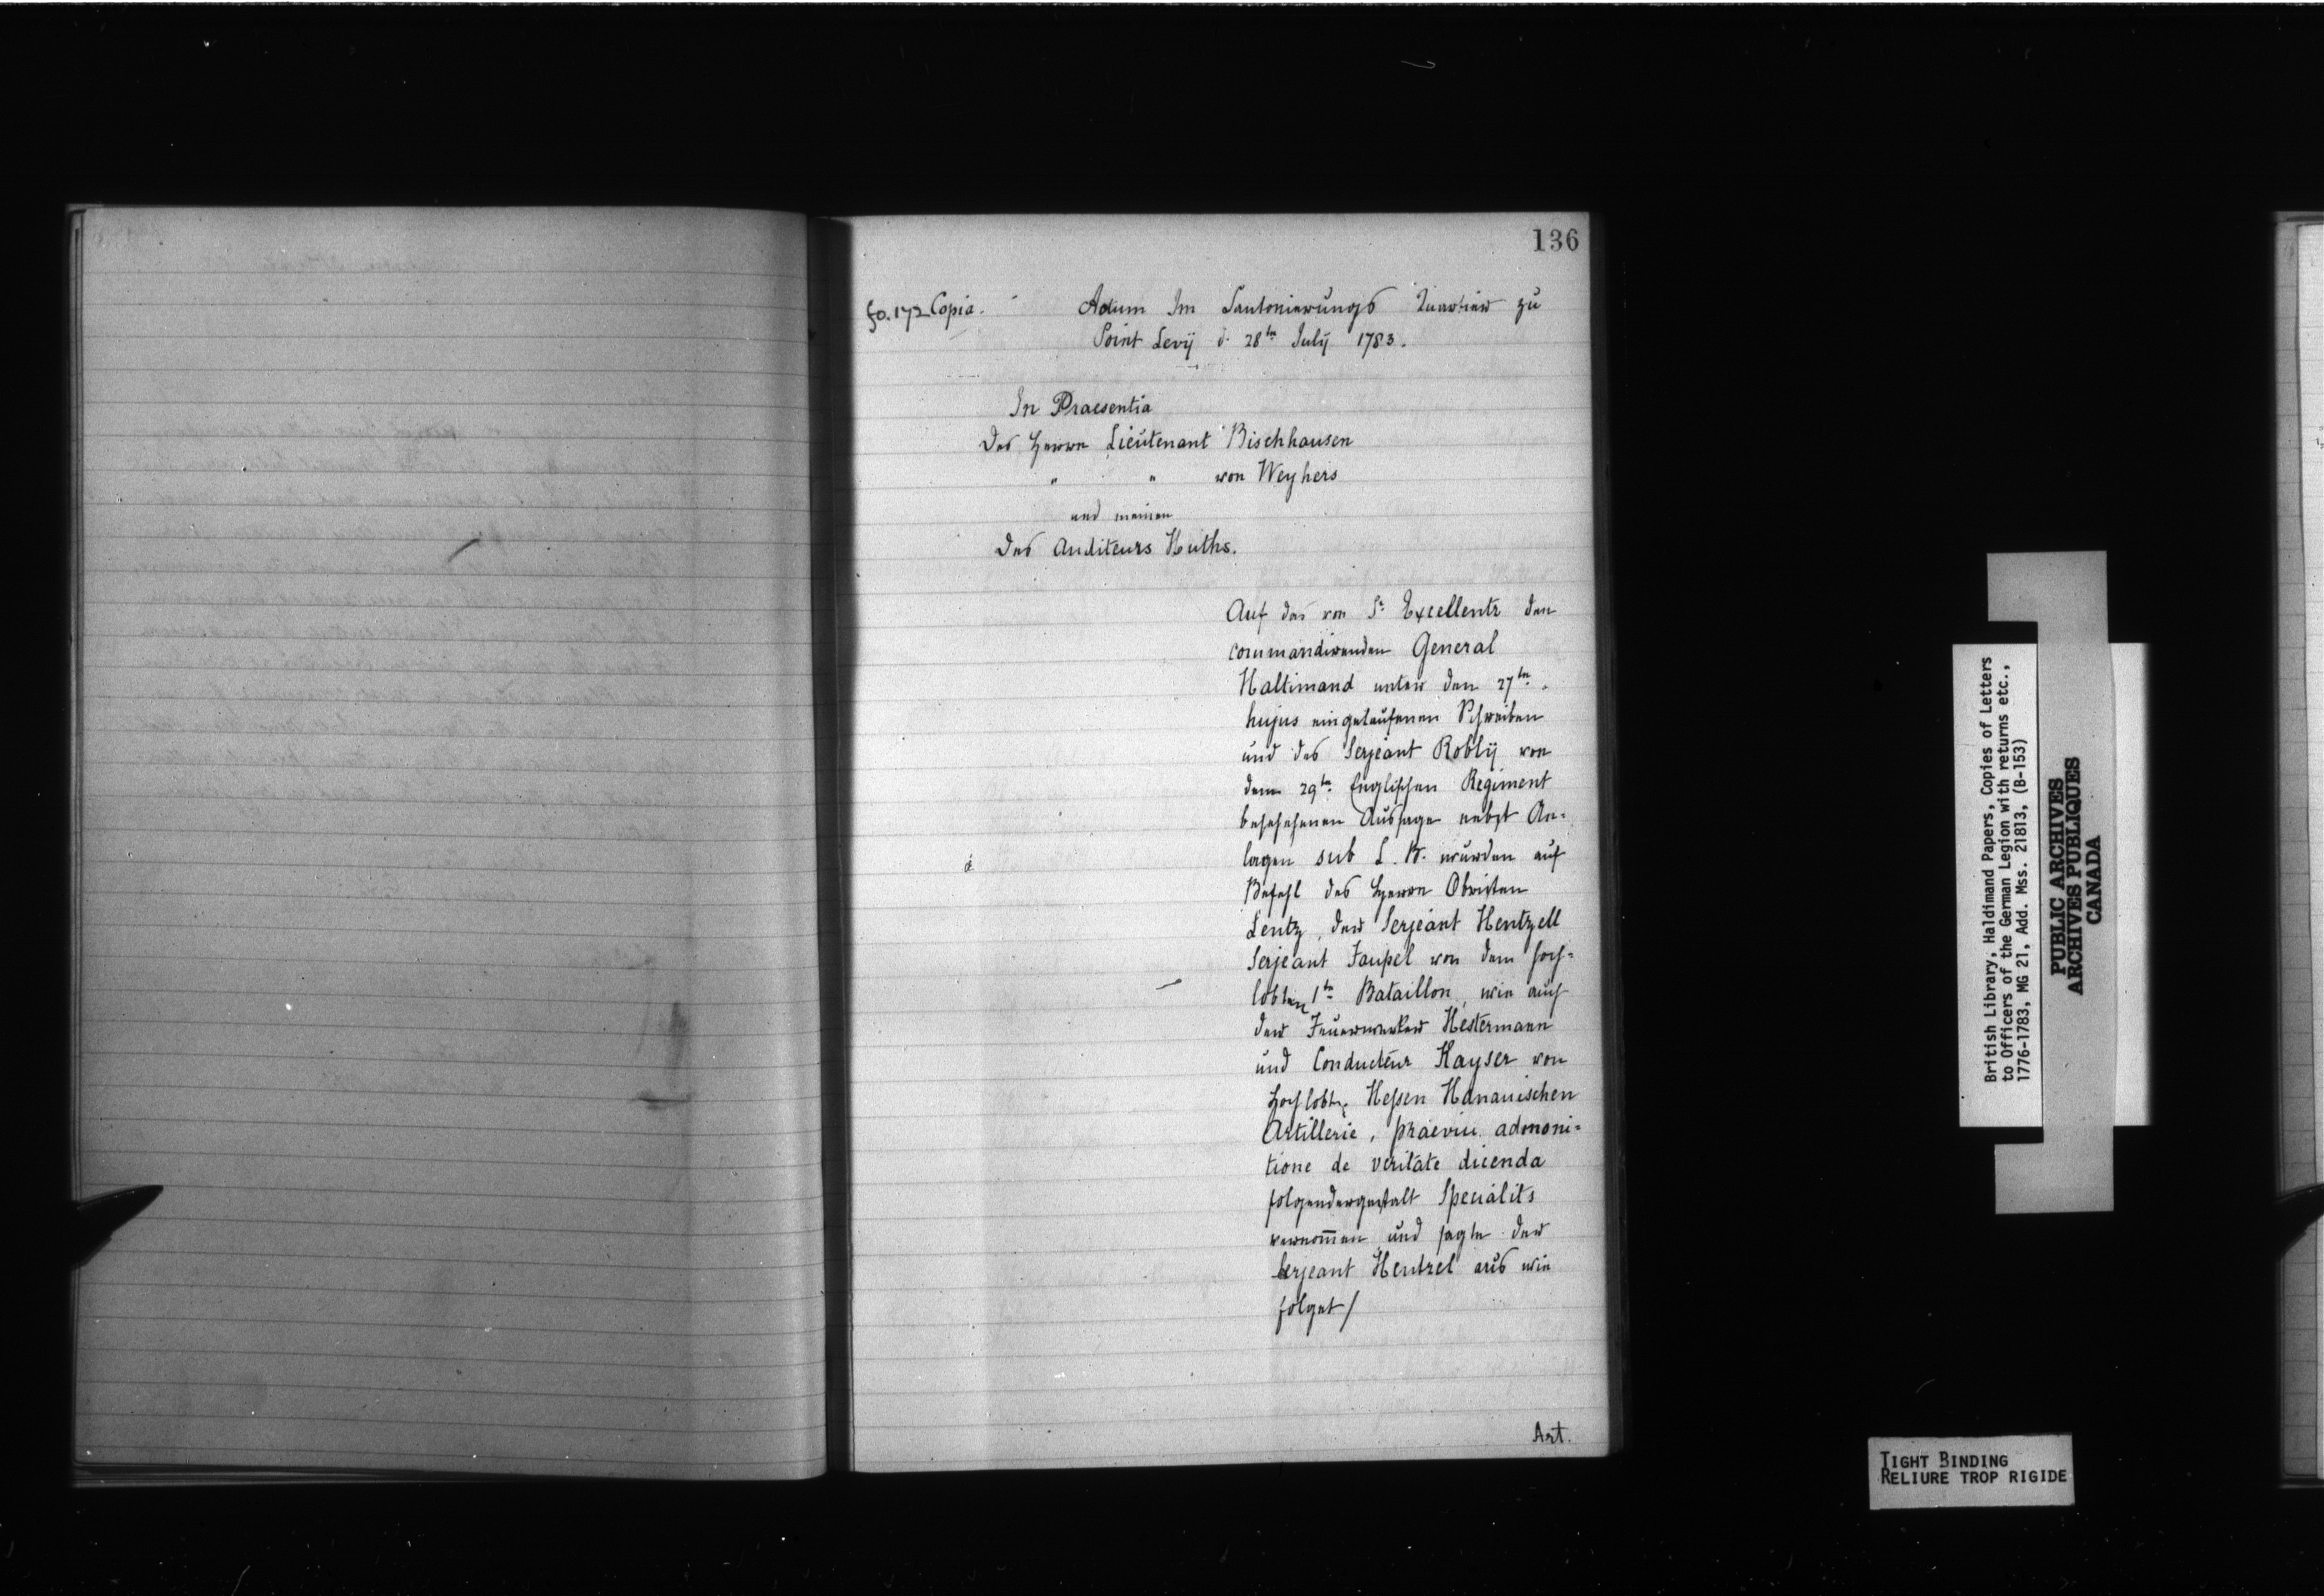 136
fo. 172 Copia. Actum Im Cantonierungs Quartier zu
Point Levÿ d. 28ten Julÿ 1783.
In Praesentia
Des Herrn Lieutenant Bischhausen
" " von Weyhers
und meiner
Des Auditeurs Huths.
Auf das von Sr. Excellentz den
commandirenden General
Haltimand unter den 27ten.
hujus eingelaufenen Schreiben
und des Serjeant Roblÿ von
dem 29ten Englischen Regiment
beschehenen Aussage nebst An-
lagen sub L. B. wurden auf
Befehl des Herrn Obristen
Lentz, der Serjeant Hentzell
Serjeant Faupel von dem hoch-
löbten 1ten Bataillon, wie auch
der Feuerwerker Hestermann
und Conducteur Kayser von
Hochlöbl. Heßen Hanauischen
Artillerie, praeviu admoni-
tione de veritate dicenda
folgendergestalt Specialits
vernom̅en und sagte der
Serjeant Hentzel aus wie
folget/
Art.
British Library, Haldimand Papers, Copies of Letters
to Officers of the German Legion with returns etc.,
1776-1783, MG 21, Add. Mss. 21813, (B-153)
PUBLIC ARCHIVES
ARCHIVES PUBLIQUES
CANADA
TIGHT BINDING
RELIURE TROP RIGIDE